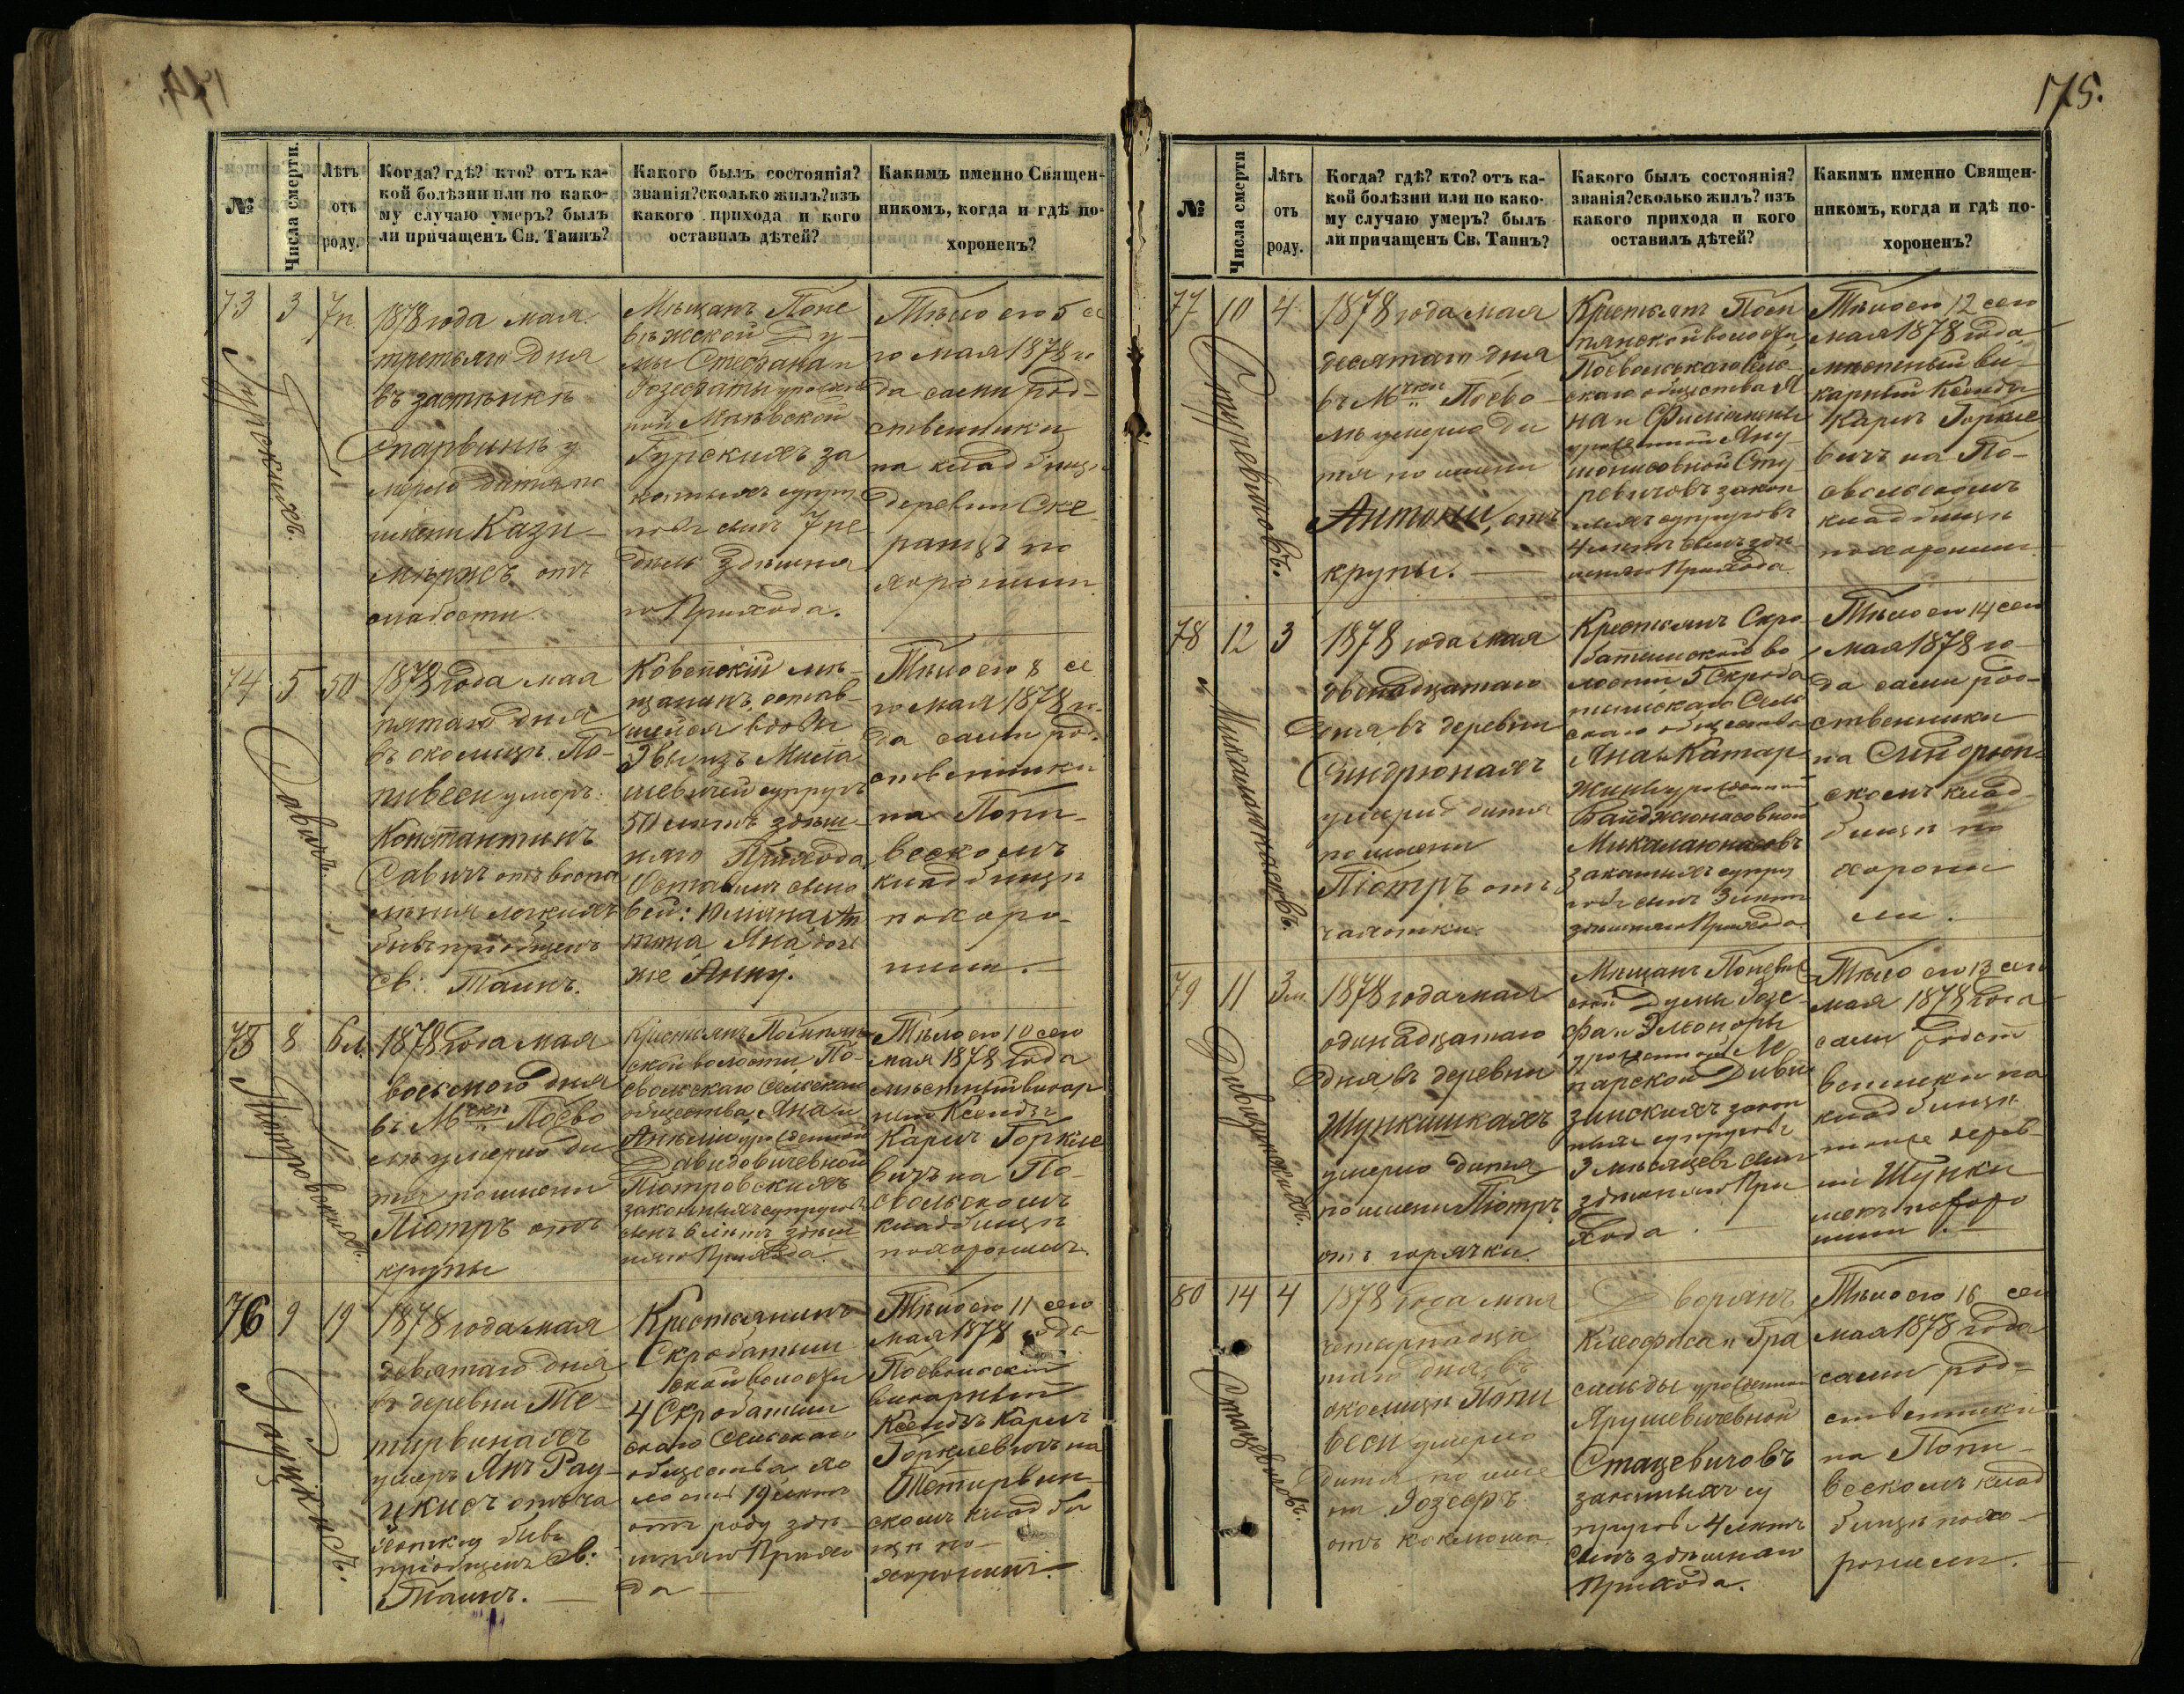 175.
№
Числа смерти.
Лѣтъ
отъ
роду.
Когда? гдѣ? кто? отъ ка-
кой болѣзни или по како-
му случаю умеръ? былъ
ли причащенъ Св. Таинъ?
Какого былъ состоянія?
званія? сколько жилъ? изъ
какого прихода и кого
оставилъ дѣтей?
Какимъ именно Священ-
никомъ, когда и гдѣ по-
хороненъ?
73
3
7н.
Гурскихъ.
1878 года мая
третьяго дня
въ застѣнкѣ
у
мерло дитя по
имени Кази-
мѣржъ отъ
слабости
Мѣщанъ Поне
вѣжской Ду-
мы Стефана и
Гурскихъ за
конныхъ супру
говъ сынъ 7 не
дѣль здѣшня
го Прихода.
Тѣло его 5 се
го мая 1878 го
да сами род-
ственники
на кладбищѣ
деревни
по
хоронили.
74
5
50
Савичъ
1878 года мая
пятаго дня
въ околицѣ По-
пивеси умеръ
Константинъ
Савичъ отъ воспа
ленія легкихъ
бывъ пріобщенъ
Св: Таинъ.
Ковенскій мѣ-
щанинъ, остав-
шейся вдовы
Эвы изъ
супругъ
50 лѣтъ здѣш-
няго Прихода
Оставилъ сыно
вей: Юліяна, Ан
тона, Яна, доч
же Анну.
Тѣло его 8 се
го мая 1878 го-
да сами род-
ственники
на Попи-
вескомъ
кладбищѣ
похоро-
нили.
75
8
6 л.
Піотровскихъ.
1878 года мая
восьмого дня
въ Мѣчки Посво
лѣ умерло ди
тя по имени
Піотръ отъ
крупы
Крестьянъ
ской волости, По-
свольскаго Сельскаго
общества, Яна и
Анели урожденной
Давидовичевной
Піотровскихъ
законныхъ супруговъ
сынъ 6 лѣтъ здѣш
няго Прихода.
Тѣло его 10 сего
мая 1878 года
мѣстный викар
ный Ксендзъ
Кароль Горкле
вичъ на По-
свольскомъ
кладбищѣ
похоронилъ.
76
9
19
Рауцкисъ.
1878 года мая
девятаго дня
въ деревни Те-
тирвиняхъ
умеръ Янъ Рау-
цкисъ отъ ча
хотки бывъ
пріобщенъ Св:
Таинъ.
Крестьянинъ
Скробатыш
ской волости
4 Скробатыш
скаго Сельскаго
общества хо
лостъ 19 лѣтъ
отъ роду здѣ-
шняго Прихо
да
Тѣло его 11 сего
мая 1878 года
Посвольскій
викарный
Ксендзъ Кароль
Горклевичъ на
Тетирвин-
скомъ кладби
щѣ по-
хоронилъ.
№
Числа смерти
Лѣтъ
отъ
роду.
Когда? гдѣ? кто? отъ ка-
кой болѣзни или по како-
му случаю умеръ? былъ
ли причащенъ Св. Таинъ?
Какого былъ состоянія?
званія? сколько жилъ? изъ
какого прихода и кого
оставилъ дѣтей?
Какимъ именно Священ-
никомъ, когда и гдѣ по-
хороненъ?
77
10
4
Стуревичовъ.
1878 года мая
десятаго дня
въ Мѣчки Посво-
лѣ умерло ди
тя по имени
Антони, отъ
крупы.
Крестьянъ
волости
Посвольскаго Сель
скаго общества Я
на и
урожденной Яну-
Сту-
ревичовъ закон
ныхъ супруговъ
4 лѣтъ сынъ здѣ
шняго Прихода.
Тѣло его 12 сего
мая 1878 года
мѣстный ви-
карный Ксендзъ
Кароль Горкле
вичъ на По-
свольскомъ
кладбищѣ
похоронилъ.
78
12
3
Микалаюнасовъ.
1878 года мая
двенадцатаго
дня въ деревни
Синдрюнахъ
умерло дитя
по имени
Піотръ отъ
чахотки.
Крестьянъ Скро-
батышской во
лости 5 Скроба
тышскаго Сель
скаго общества
Яна и Катар-
жины урожденной
Байджюнасовной
Микалаюнасовъ
законныхъ супру
говъ сынъ 3 лѣтъ
здѣшняго Прихода
Тѣло его 14 сего
мая 1878 го-
да сами род-
ственники
на Синдрюн-
скомъ клад-
бищѣ по
хорони
ли.
79
11
3 м.
1878 года мая
одинадцатаго
дня въ деревни
Шункишкахъ
умерло дитя
по имени Піотръ
отъ горячки
Мѣщанъ Поневѣж
ской Думы Юзе-
фа и Элеоноры
урожденной
Диви
зинскихъ закон
ныхъ супруговъ
3 мѣсяцевъ сынъ
здѣшняго При
хода.
Тѣло его 13 сего
мая 1878 года
сами родст
венники на
кладбищѣ
тойже дерев-
ни
похоро
нили.
80
14
4
Стацевичовъ.
1878 года мая
четырнадца
таго дня, въ
околицѣ Попи
веси умерло
дитя по име
ни Юзефъ
отъ коклюша.
Дворянъ
Клеофаса и Гра
сильды урожденной
Ярушевичевной
Стацевичовъ
законныхъ су
пруговъ 4 лѣтъ
сынъ здѣшняго
Прихода.
Тѣло его 16 сего
мая 1878 года
сами род-
ственники
на Попи-
вескомъ клад
бищѣ похо-
ронили.